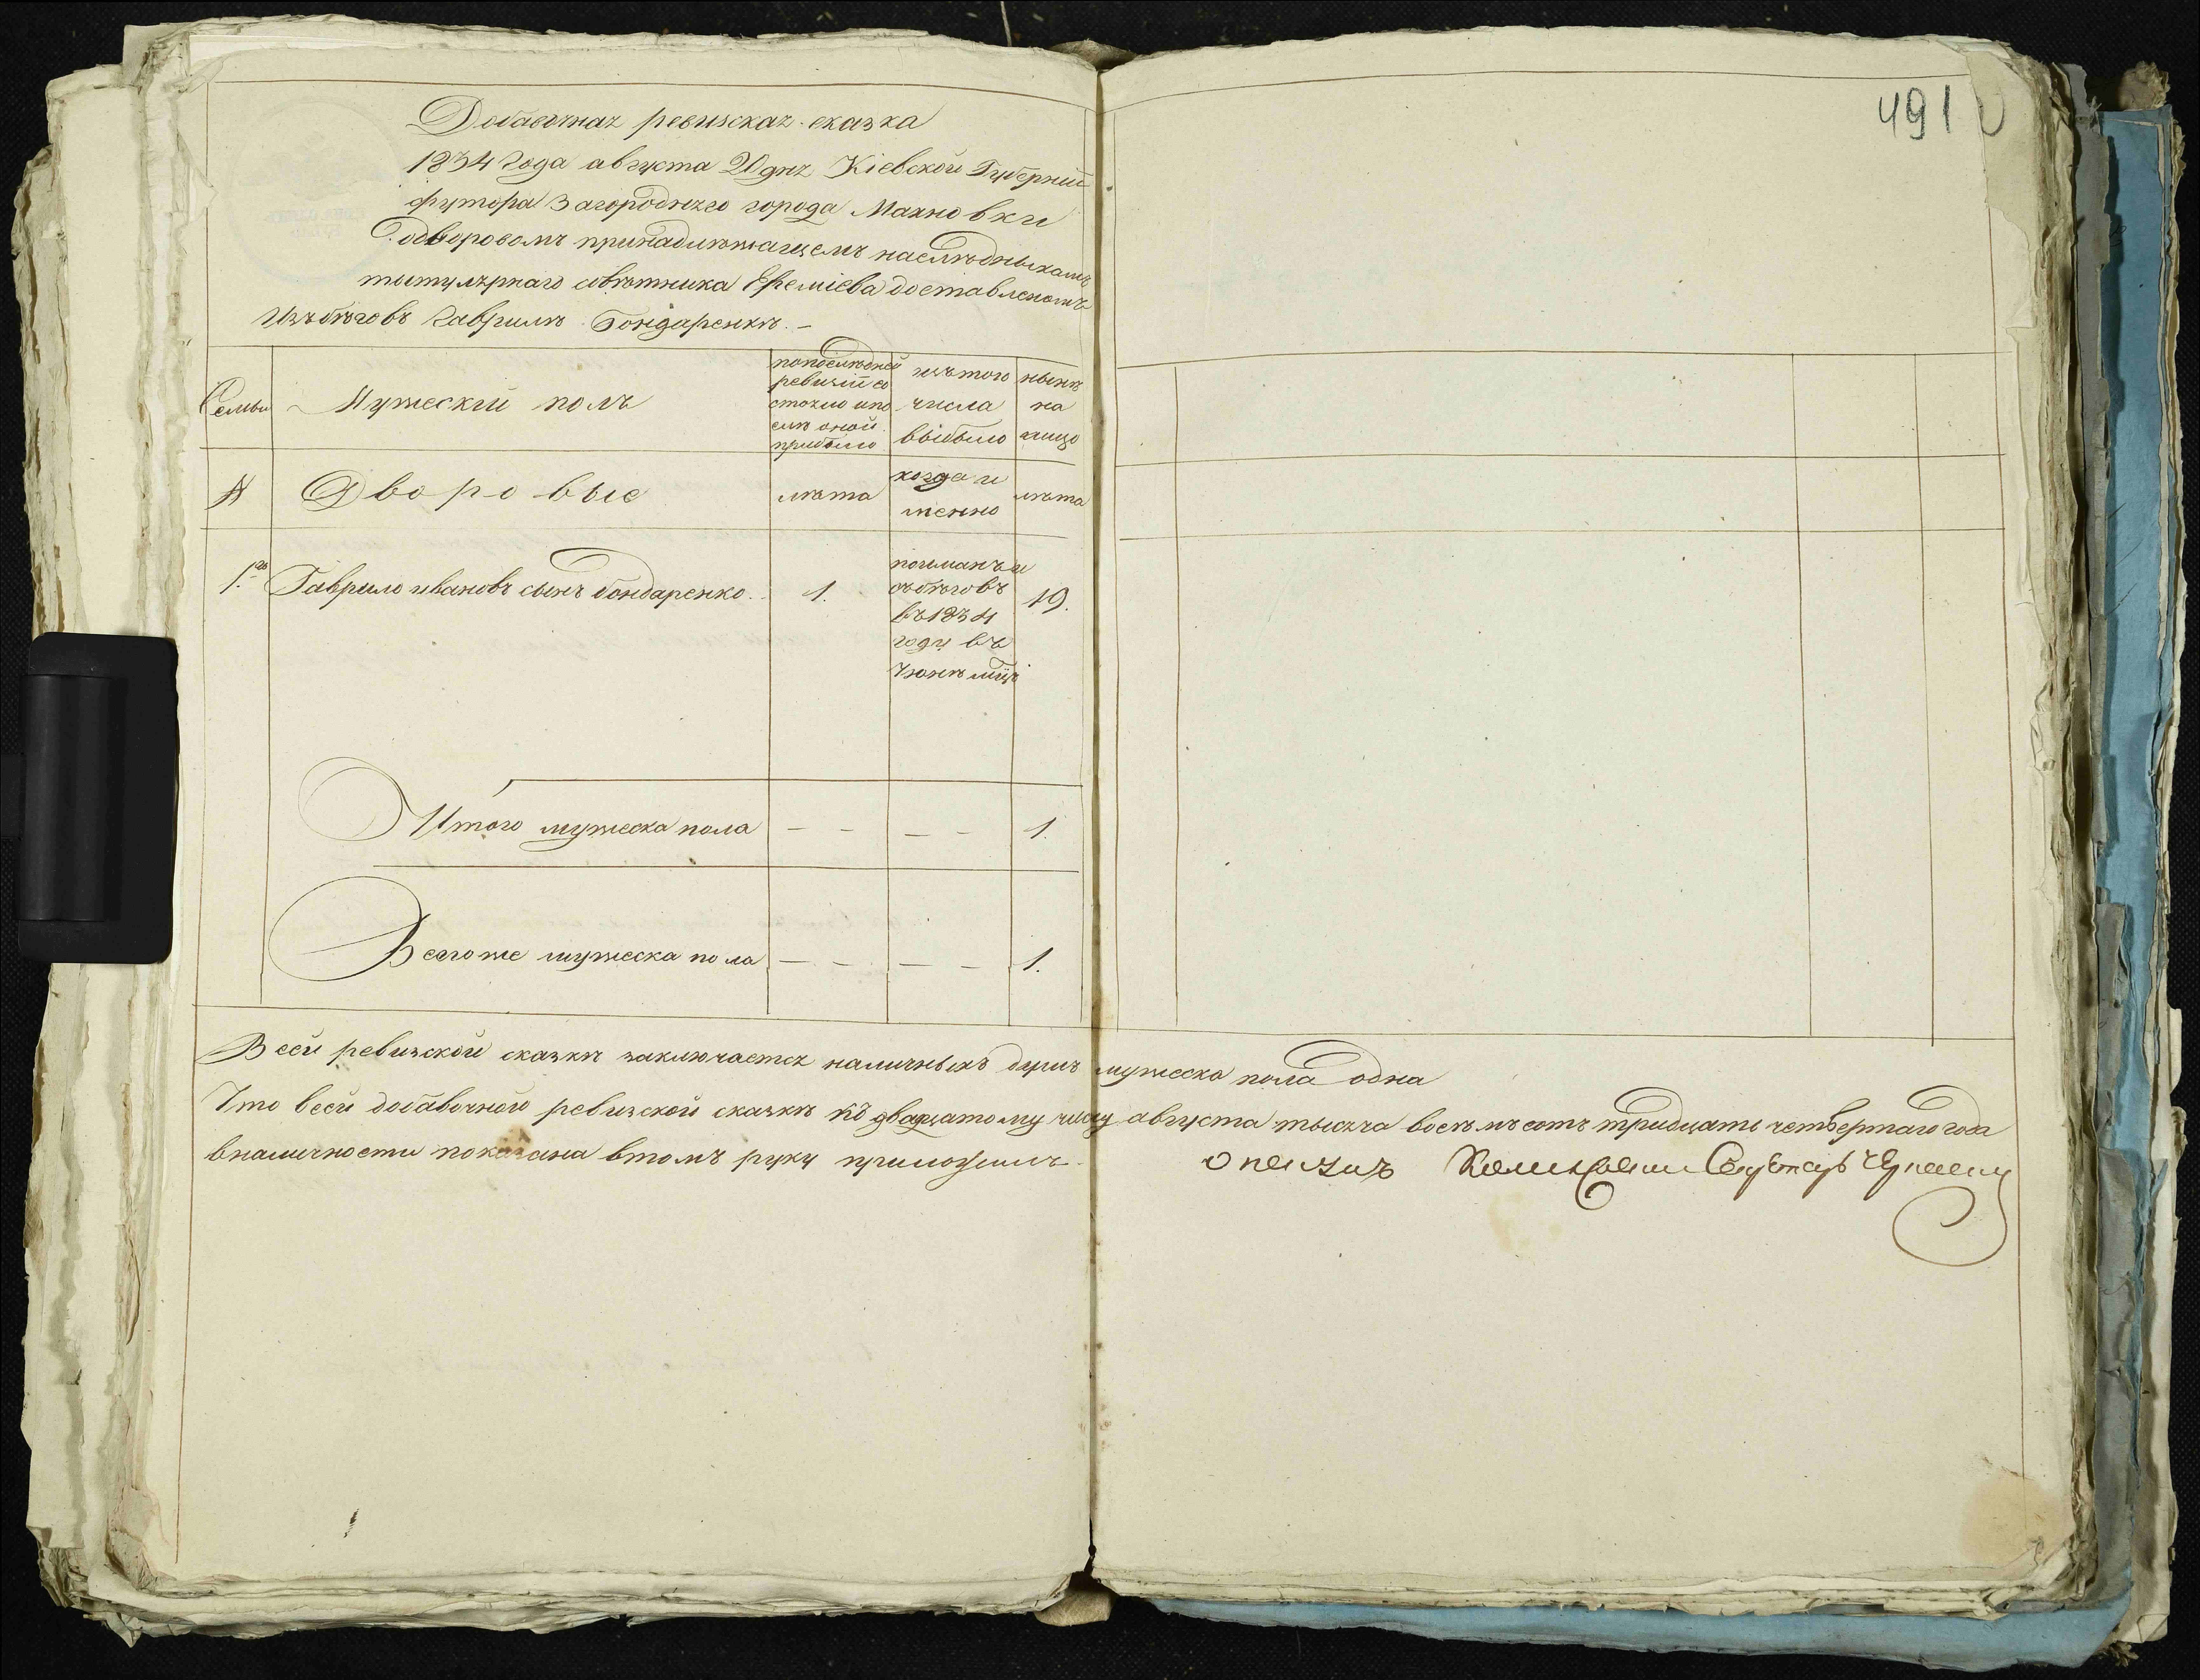 491
Добавочная ревизская сказка
1834 года августа 20 дня Кіевской Губерніи
футора Загородняго города Махновки
О дворовомъ принадлежащемъ наслѣдныкамъ
тытулярнаго совѣтника Еремієва доставленомъ
Изъ бѣговъ Гаврилѣ Бондаренкѣ. –
Семьи
Мужескій полъ
попослѣдней ревизіи состояло ипослѣ оной прибыло
изътого числа выбыло
нынѣ на лицо
№
Дворовые
лѣта
когда именно
лѣта
1.
Гаврило ивановъ сынъ бондаренко.
1.
пойманъ и
зъбѣговъ
въ 1834
годѣ въ
Іюнѣ мцѣ
19.
Итого мужеска пола – – – – 1.
Всего же мужеска пола – – – – 1.
В сей ревизской сказкѣ заключается наличныхъ душъ мужеска пола одна
Что всей добавочной ревизской сказкѣ къ двадцатому числу августа тысяча восемъ сотъ тридцать четвертаго года
вналичности показана втомъ руку приложилъ
опекунъ